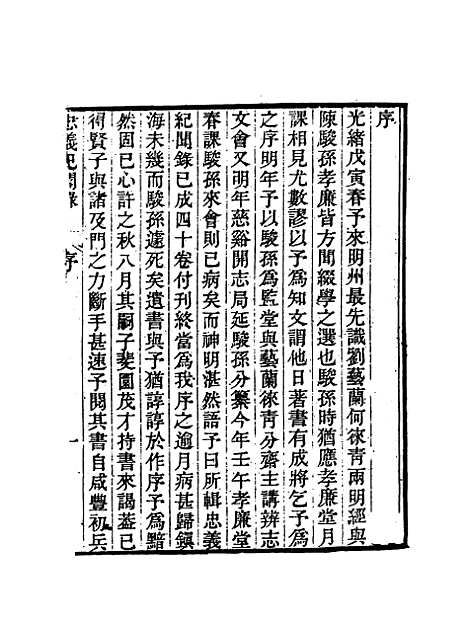 序
光緒戊寅春予來明州最先識劉藝蘭何徠青兩明經與
陳駿孫孝廉皆方聞綴學之選也駿孫時猶應孝廉堂月
課相見尤數謬以予爲知文謂他日著書有成將乞予爲
之序明年予以駿孫爲監堂與藝蘭徠青分齋主講辨志
文會又明年慈谿開志局延駿孫分纂今年壬午孝廉堂
春課駿孫來會則已病矣而神明湛然語予曰所輯忠義
紀聞錄已成四十卷付刊終當爲我序之逾月病甚歸鎭
海未幾而駿孫遠死矣遺書與予猶諄諄於作序予爲黯
然固已心許之秋八月其嗣子斐園茂才持書來謁葢已
得賢子與諸及門之力斷手甚速予閱其書自咸豐初兵
忠義紀聞錄
序
一